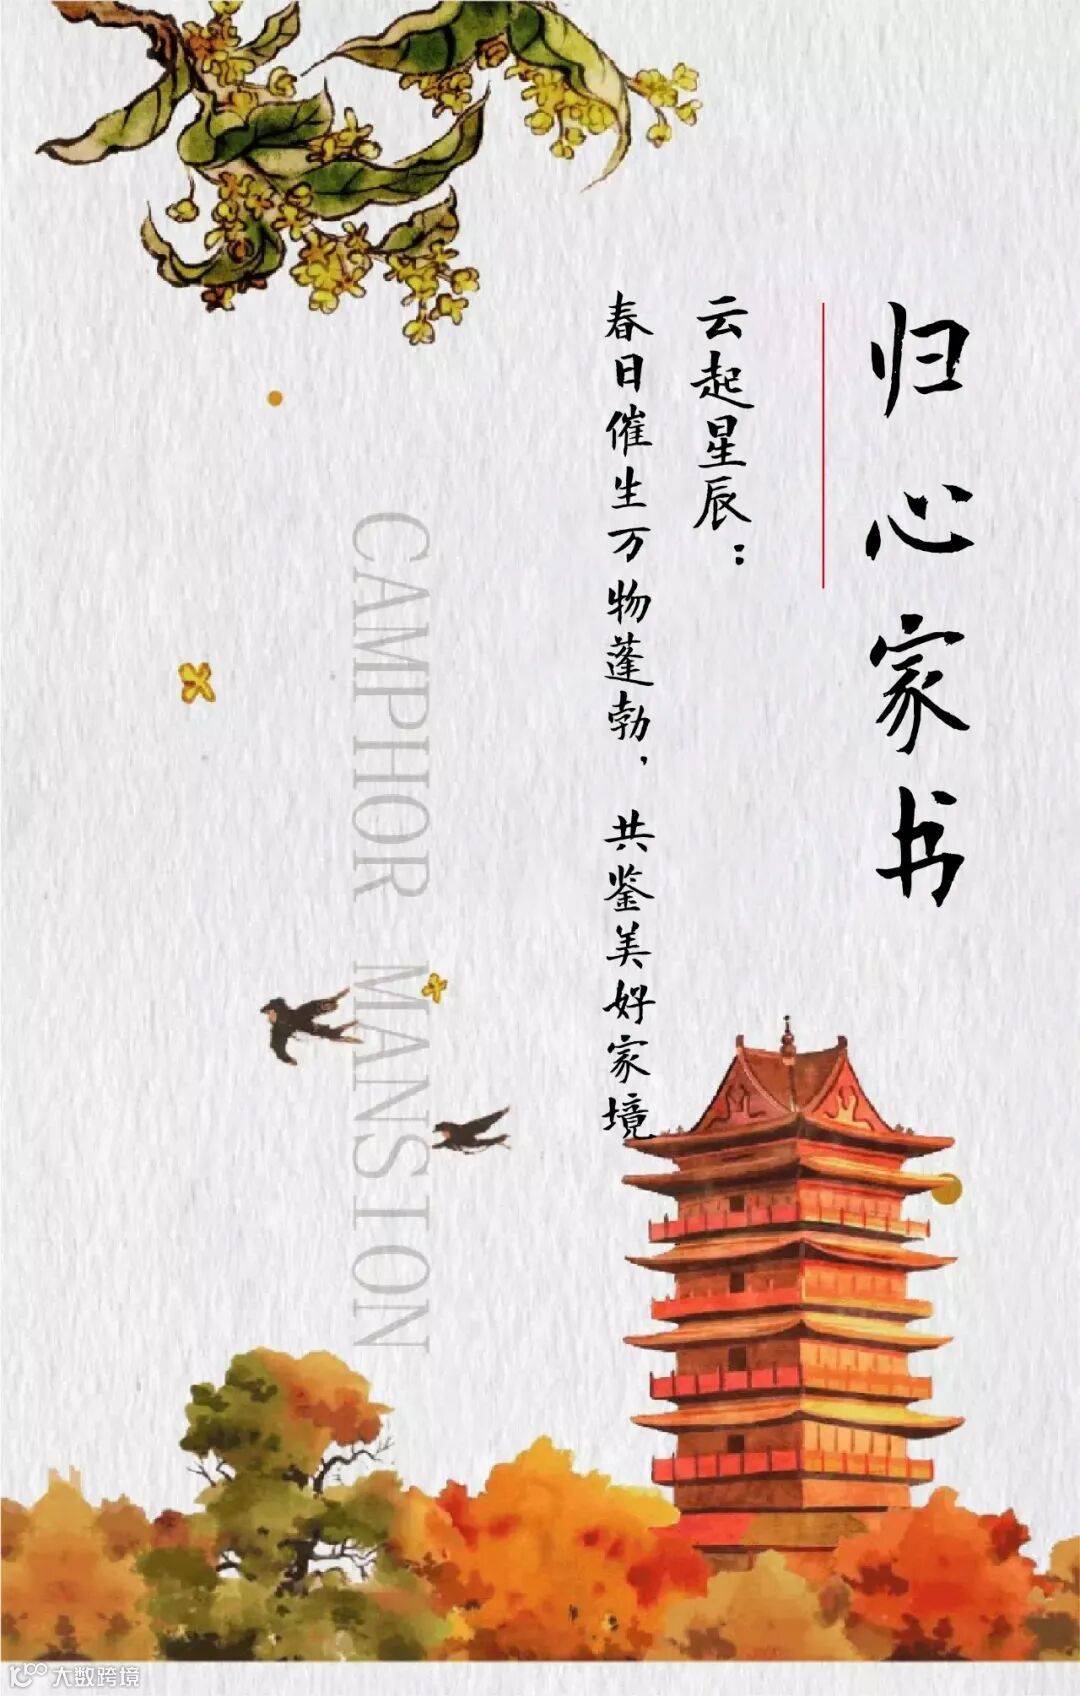 归心家书
云起星辰：
春日催生万物蓬勃，共鉴美好家境
CAMPHOR MANSION
大数跨境